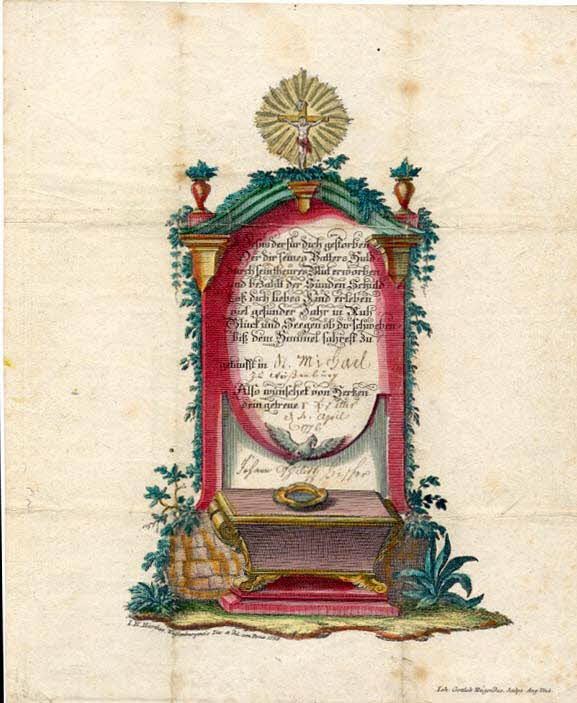 Jesus der für dich gestorben
Der dir seines Vatters Huld
durch sein theures Blut erworben
und bezahlt der Sünden Schuld
Laß dich liebes Kind erleben
viel gesunder Jahr in Ruh
Glück und Seegen ob dir schweben
biß dem Himmel fahrest zu
getaufft in St. Michael
zu
Also wünschet von Hertzen
dein getreuer
April
1776
Johann
Joh. Gottlieb sculps. Aug. Vind.